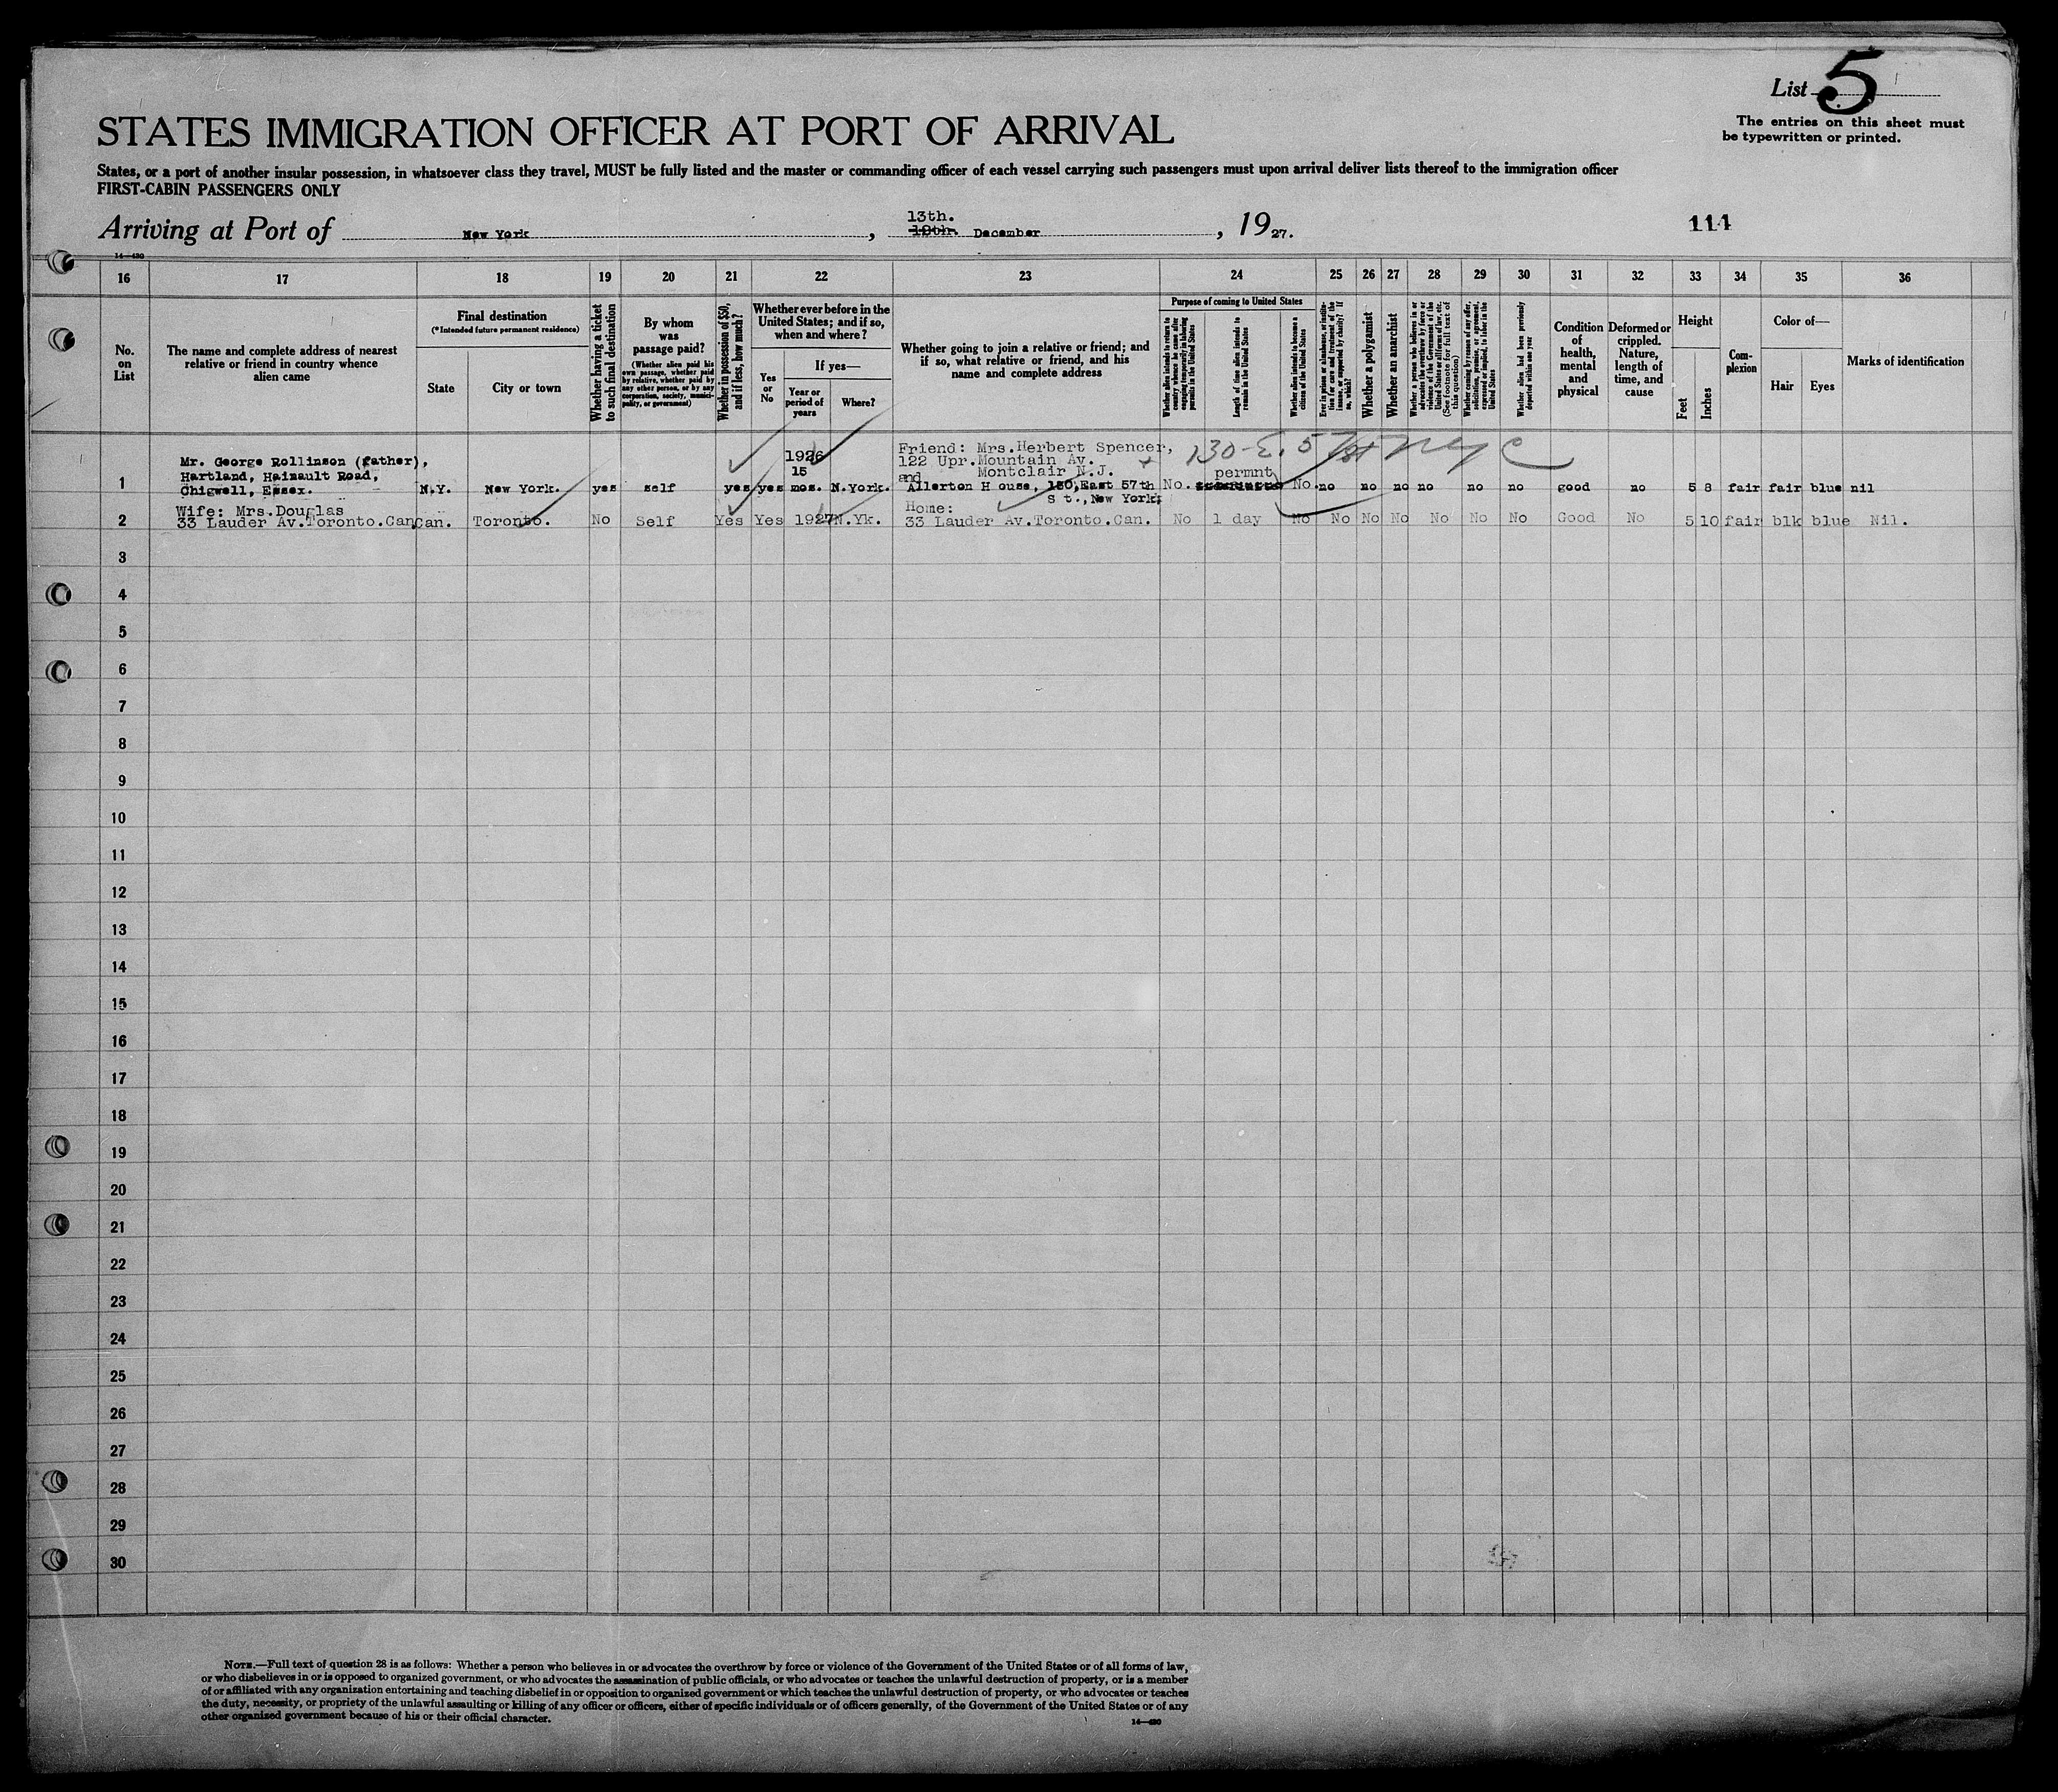 List 5
The entries on this sheet must
be typewritten or printed.
STATES IMMIGRATION OFFICER AT PORT OF ARRIVAL
States, or a port of another insular possession, in whatsoever class they travel, MUST be fully listed and the master or commanding officer of each vessel carrying such passengers must upon arrival deliver lists thereof to the immigration officer
FIRST-CABIN PASSENGERS ONLY
13th.
Arriving at Port of New York, 12th. December, 1927.
114
14—430
16 17 18 19 20 21 22 23 24 25 26 27 28 29 30 31 32 33 34 35 36
No. on List
The name and complete address of nearest
relative or friend in country whence
alien came
Final destination
(*Intended future permanent residence)
State
City or town
Whether having a ticket
to such final destination
By whom
was
passage paid?
(Whether alien paid his
own passage, whether paid
by relative, whether paid by
any other person, or by any
corporation, society, munici-
pality, or government)
Whether in possession of $50,
and if less, how much?
Whether ever before in the
United States; and if so,
when and where?
Yes
or
No
If yes—
Year or
period of
years
Where?
Whether going to join a relative or friend; and
if so, what relative or friend, and his
name and complete address
Purpose of coming to United States
Whether alien intends to return to
country whence he came after
engaging temporarily in laboring
pursuits in the United States
Length of time alien intends to
remain in the United States
Whether alien intends to become a
citizen of the United States
Ever in prison or almshouse, or institu-
tion for care and treatment of the
insane, or supported by charity? If
so, which?
Whether a polygamist
Whether an anarchist
Whether a person who believes in or
advocates the overthrow by force or
violence of the Government of the
United States or all forms of law, etc.
(See footnote for full text of
this question)
Whether coming by reason of any offer,
solicitation, promise, or agreement,
expressed or implied, to labor in the
United States
Whether alien had been previously
deported within one year
Condition
of
health,
mental
and
physical
Deformed or
crippled.
Nature,
length of
time, and
cause
Height
Feet
Inches
Com-
plexion
Color of—
Hair
Eyes
Marks of identification
Friend: Mrs.Herbert Spencer,
122 Upr.Mountain Av.
Montclair N.J.
130-E. 57 St NYC
Mr. George Rollinson (father),
Hartland, Hainault Road,
1 Chigwell, Essex. N.Y. New York. yes self yes yes 1926 15 mos. N.York. and Allerton House, 130,East 57th St.,New York. No. permnt No. no no no no no no good no 5 8 fair fair blue nil
Wife: Mrs.Douglas
Home:
2 33 Lauder Av.Toronto.Can. Can. Toronto. No Self Yes Yes 1927 N.Yk. 33 Lauder Av.Toronto.Can. No 1 day No No No No No No No Good No 5 10 fair blk blue Nil.
3
4
5
6
7
8
9
10
11
12
13
14
15
16
17
18
19
20
21
22
23
24
25
26
27
28
29
30
NOTE.—Full text of question 28 is as follows: Whether a person who believes in or advocates the overthrow by force or violence of the Government of the United States or of all forms of law,
or who disbelieves in or is opposed to organized government, or who advocates the assassination of public officials, or who advocates or teaches the unlawful destruction of property, or is a member
of or affiliated with any organization entertaining and teaching disbelief in or opposition to organized government or which teaches the unlawful destruction of property, or who advocates or teaches
the duty, necessity, or propriety of the unlawful assaulting or killing of any officer or officers, either of specific individuals or of officers generally, of the Government of the United States or of any
other organized government because of his or their official character.
14—430